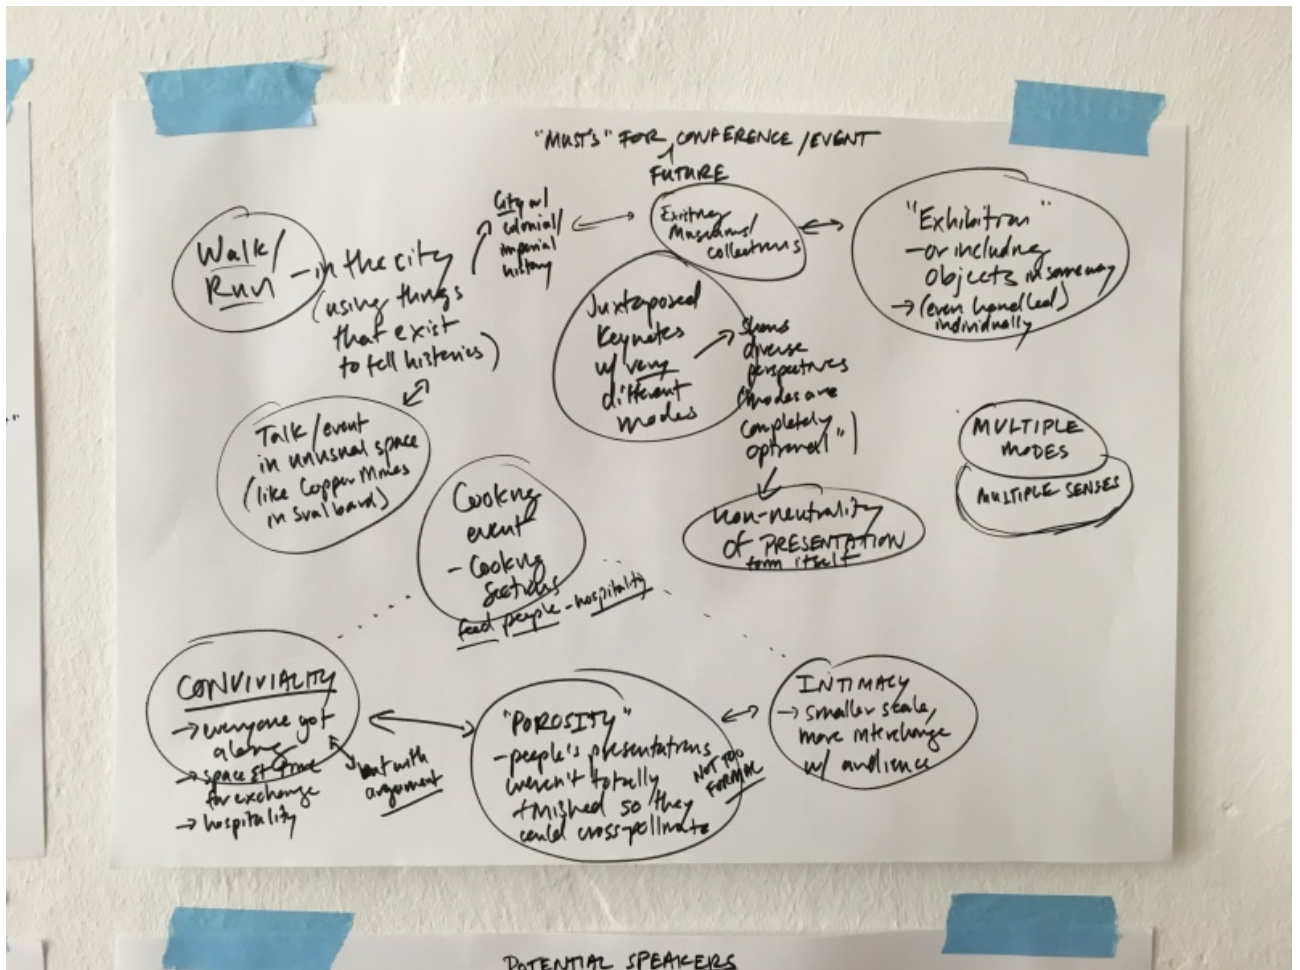 "MUSTS" FOR CONFERENCE/EVENT
FUTURE
Walk/
Run
- in the city
(using things
that exist
to tell histories)
City w/
colonial/
imperial
history
Existing
Museums/
collections
"Exhibition"
- or including
objects in some way
→ (even handled)
individually
Juxtaposed
Keynotes
w/ very
different
modes
shows
diverse
perspectives
("modes are
completely
optional")
Talk/event
in unusual space
(like Copper Mines
in Svalbard)
MULTIPLE
MODES
MULTIPLE SENSES
Cooking
event
- Cooking
Sections
feed people - hospitality
non-neutrality
of PRESENTATION
form itself
CONVIVIALITY
→ everyone got
along
→ space & time
for exchange
→ hospitality
but with
argument
"POROSITY"
- people's presentations
weren't totally
finished so they
could cross-pollinate
NOT TOO
FORMAL
INTIMACY
→ smaller scale,
more interchange
w/ audience
POTENTIAL SPEAKERS